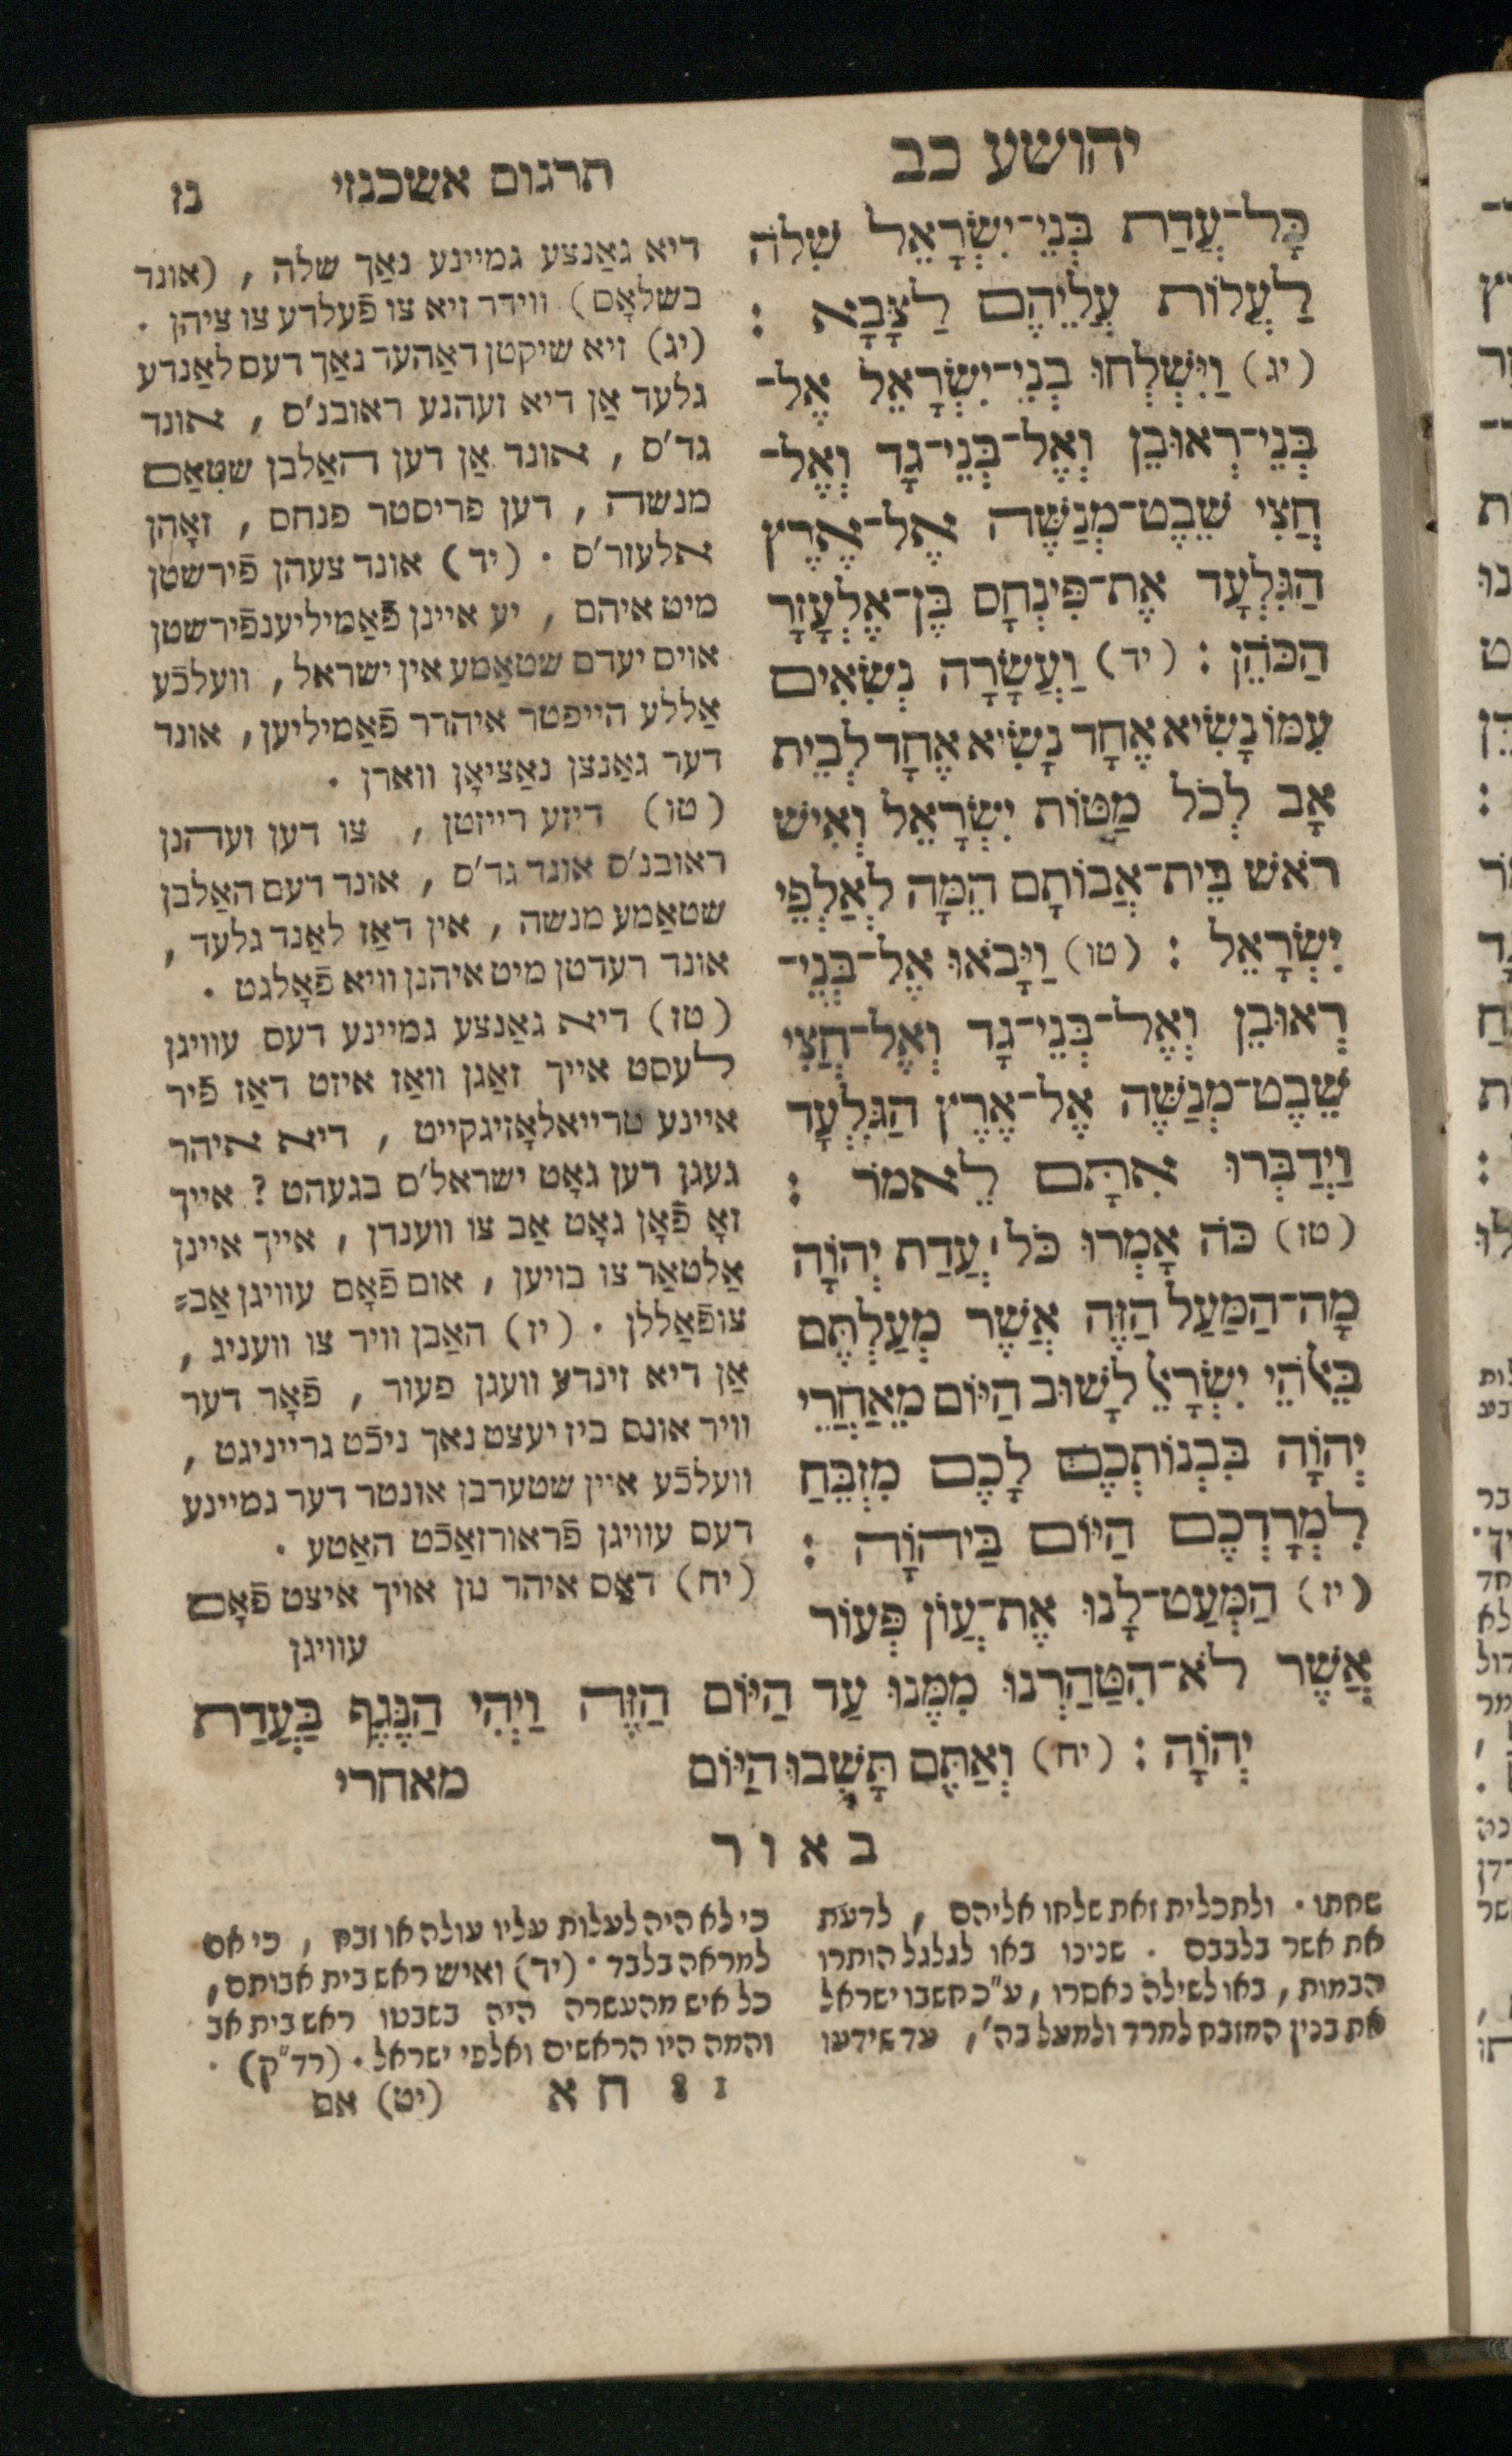 יהושע כב
תרגום אשכנזי
נז
כָּל־עֲדַת בְּנֵי־יִשְׂרָאֵל שִׁלֹה
לַעֲלוֹת עֲלֵיהֶם לַצָּבָא :
(יג) וַיִּשְׁלְחוּ בְנֵי־יִשְׂרָאֵל אֶל־
בְּנֵי־רְאוּבֵן וְאֶל־בְּנֵי־גָד וְאֶל־
חֲצִי שֵׁבֶט־מְנַשֶּׁה אֶל־אֶרֶץ
הַגִּלְעָד אֶת־פִּינְחָס בֶּן־אֶלְעָזָר
הַכֹּהֵן : (יד) וַעֲשָׂרָה נְשִׂאִים
עִמּוֹ נָשִׂיא אֶחָד נָשִׂיא אֶחָד לְבֵית
אָב לְכֹל מַטּוֹת יִשְׂרָאֵל וְאִישׁ
רֹאשׁ בֵּית־אֲבוֹתָם הֵמָּה לְאַלְפֵי
יִשְׂרָאֵל : (טו) וַיָּבֹאוּ אֶל־בְּנֵי־
רְאוּבֵן וְאֶל־בְּנֵי־גָד וְאֶל־חֲצִי
שֵׁבֶט־מְנַשֶּׁה אֶל־אֶרֶץ הַגִּלְעָד
וַיְדַבְּרוּ אִתָּם לֵאמֹר :
(טז) כֹּה אָמְרוּ כֹּל ׀ עֲדַת יְהוָֹה
מָה־הַמַּעַל הַזֶּה אֲשֶׁר מְעַלְתֶּם
בֵּאלֹהֵי יִשְׂרָאֵל לָשׁוּב הַיּוֹם מֵאַחֲרֵי
יְהוָֹה בִּבְנוֹתְכֶם לָכֶם מִזְבֵּחַ
לִמְרָדְכֶם הַיּוֹם בַּיהוָֹה :
(יז) הַמְעַט־לָנוּ אֶת־עֲוֹן פְּעוֹר
אֲשֶׁר לֹא־הִטַּהַרְנוּ מִמֶּנּוּ עַד הַיּוֹם הַזֶּה וַיְהִי הַנֶּגֶף בַּעֲדַת
יְהוָֹה : (יח) וְאַתֶּם תָּשֻׁבוּ הַיּוֹם
מאחרי
דיא גאַנצע גמיינע נאַך שלה , (אונד
בשלאָם) ווידר זיא צו פֿעלדע צו ציהן .
(יג) זיא שיקטן דאַהער נאַך דעם לאַנדע
גלעד אַן דיא זעהנע ראובנ'ס , אונד
גד'ס , אונד אַן דען האַלבן שטאַם
מנשה , דען פריסטר פנחס , זאָהן
אלעזר'ס . (יד) אונד צעהן פֿירשטן
מיט איהם , יע איינן פֿאַמיליענפֿירשטן
אויס יעדם שטאַמע אין ישראל , וועלכֿע
אַללע הייפטר איהרר פֿאַמיליען , אונד
דער גאַנצן נאַציאָן ווארן .
(טו) דיזע רייזטן , צו דען זעהנן
ראובנ'ס אונד גד'ס , אונד דעם האַלבן
שטאַמע מנשה , אין דאַז לאַנד גלעד ,
אונד רעדטן מיט איהנן וויא פֿאָלגט .
(טז) דיא גאַנצע גמיינע דעס עוויגן
לעסט אייך זאַגן וואַז איזט דאַז פֿיר
איינע טרייאלאָזיגקייט , דיא איהר
געגן דען גאָט ישראל'ס בגעהט ? אייך
זאָ פֿאָן גאָט אַב צו ווענדן , אייך איינן
אַלטאַר צו בויען , אום פֿאָם עוויגן אַב=
צופֿאַללן . (יז) האַבן וויר צו וועניג ,
אַן דיא זינדע וועגן פעור , פֿאָר דער
וויר אונס ביז יעצט נאך ניכֿט גרייניגט ,
וועלכֿע איין שטערבן אונטר דער גמיינע
דעס עוויגן פֿראורזאַכֿט האַטע .
(יח) דאַס איהר נון אויך איצט פֿאָם
עוויגן
באור
שחתו . ולתכלית זאת שלחו אליהם , לדעת
את אשר בלבבם . שכיכו באו לגלגל הותרו
הבמות , באו לשילה נאסרו , ע"כ חשבו ישראל
את בנין המזבח למרד ולמעל בה' , עד שידעו
כי לא היה לעלות עליו עולה או זבח , כי אם
למראה בלבד . (יד) ואיש ראש בית אבותם ,
כל איש מהעשרה היה בשבטו ראש בית אב
והמה היו הראשים ואלפי ישראל . (רד"ק) .
1 8 ח א
(יט) אם